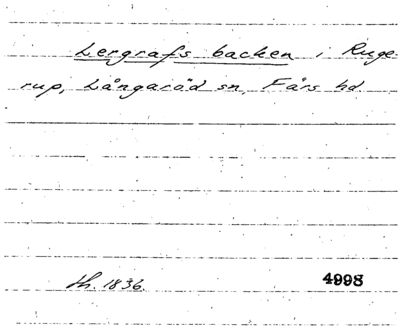 Lergrafs backen i Ruge-
rup, Långaröd sn, Färs hd.
th. 1836.
4998